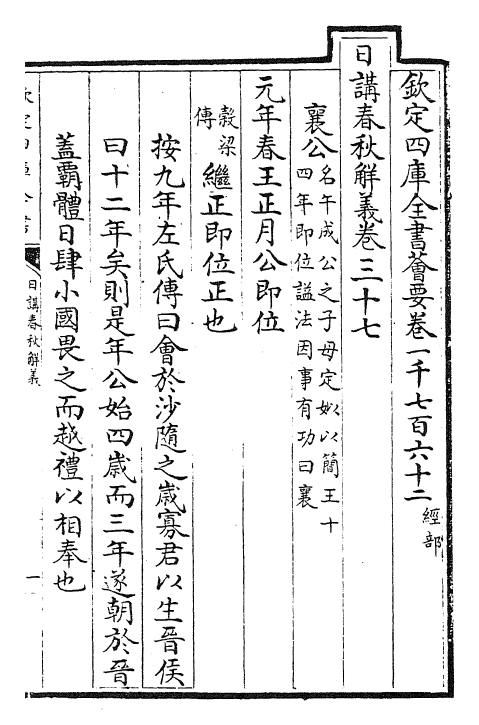 欽定四庫全書薈要卷一千七百六十二
經部
日講春秋解義卷三十七
襄公
名午成公之子母定姒以簡王十
四年即位諡法因事有功曰襄
元年春王正月公即位
穀梁
傳
繼正即位正也
按九年左氏傳曰會於沙隨之歲寡君以生晉侯
曰十二年矣則是年公始四歲而三年遂朝於晉
蓋霸體日肆小國畏之而越禮以相奉也
日講春秋解義
一